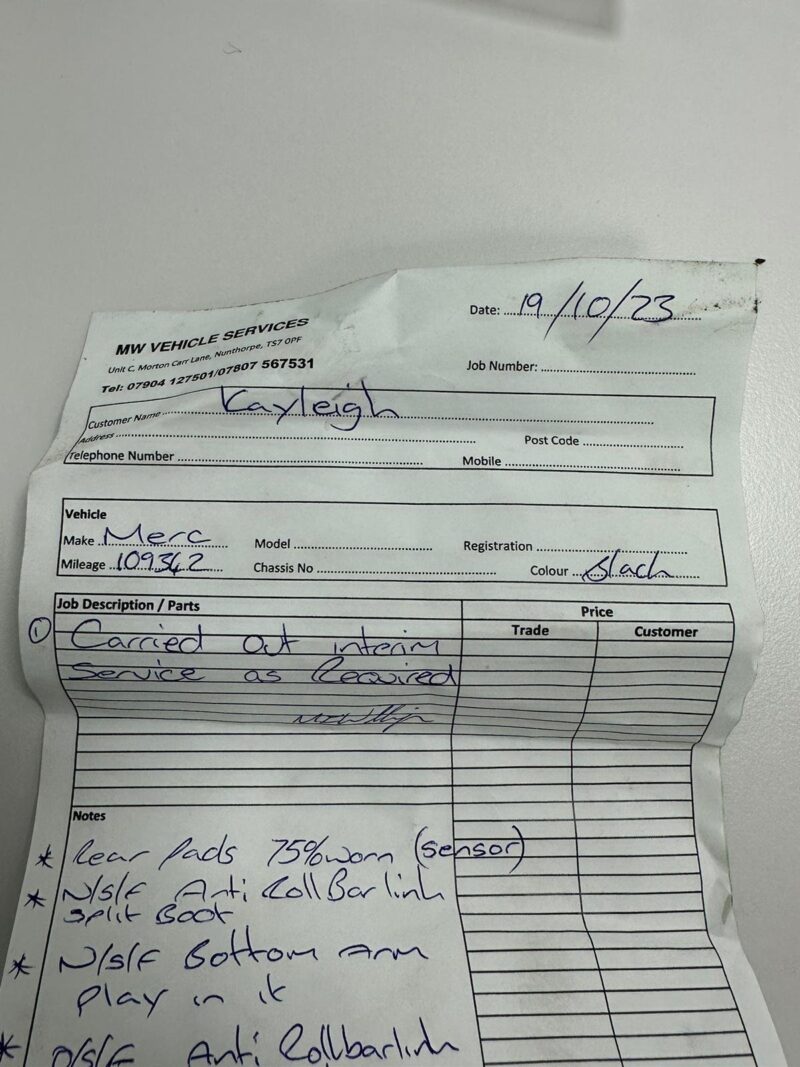 MW VEHICLE SERVICES
Unit C, Morton Carr Lane, Nunthorpe, TS7 0PF
Tel: 07904 127501/07807 567531
Date: 19/10/23
Job Number:
Customer Name Kayleigh
Address
Post Code
Telephone Number
Mobile
Vehicle
Make Merc
Model
Registration
Mileage 109342
Chassis No
Colour Black
Job Description / Parts
Price
Trade
Customer
① Carried out interim
Service as Required
Notes
* Rear Pads 75% worn (sensor)
* N/S/F Anti Roll Bar link
Split Boot
* N/S/F Bottom Arm
Play in it
* O/S/F Anti Rollbarlink